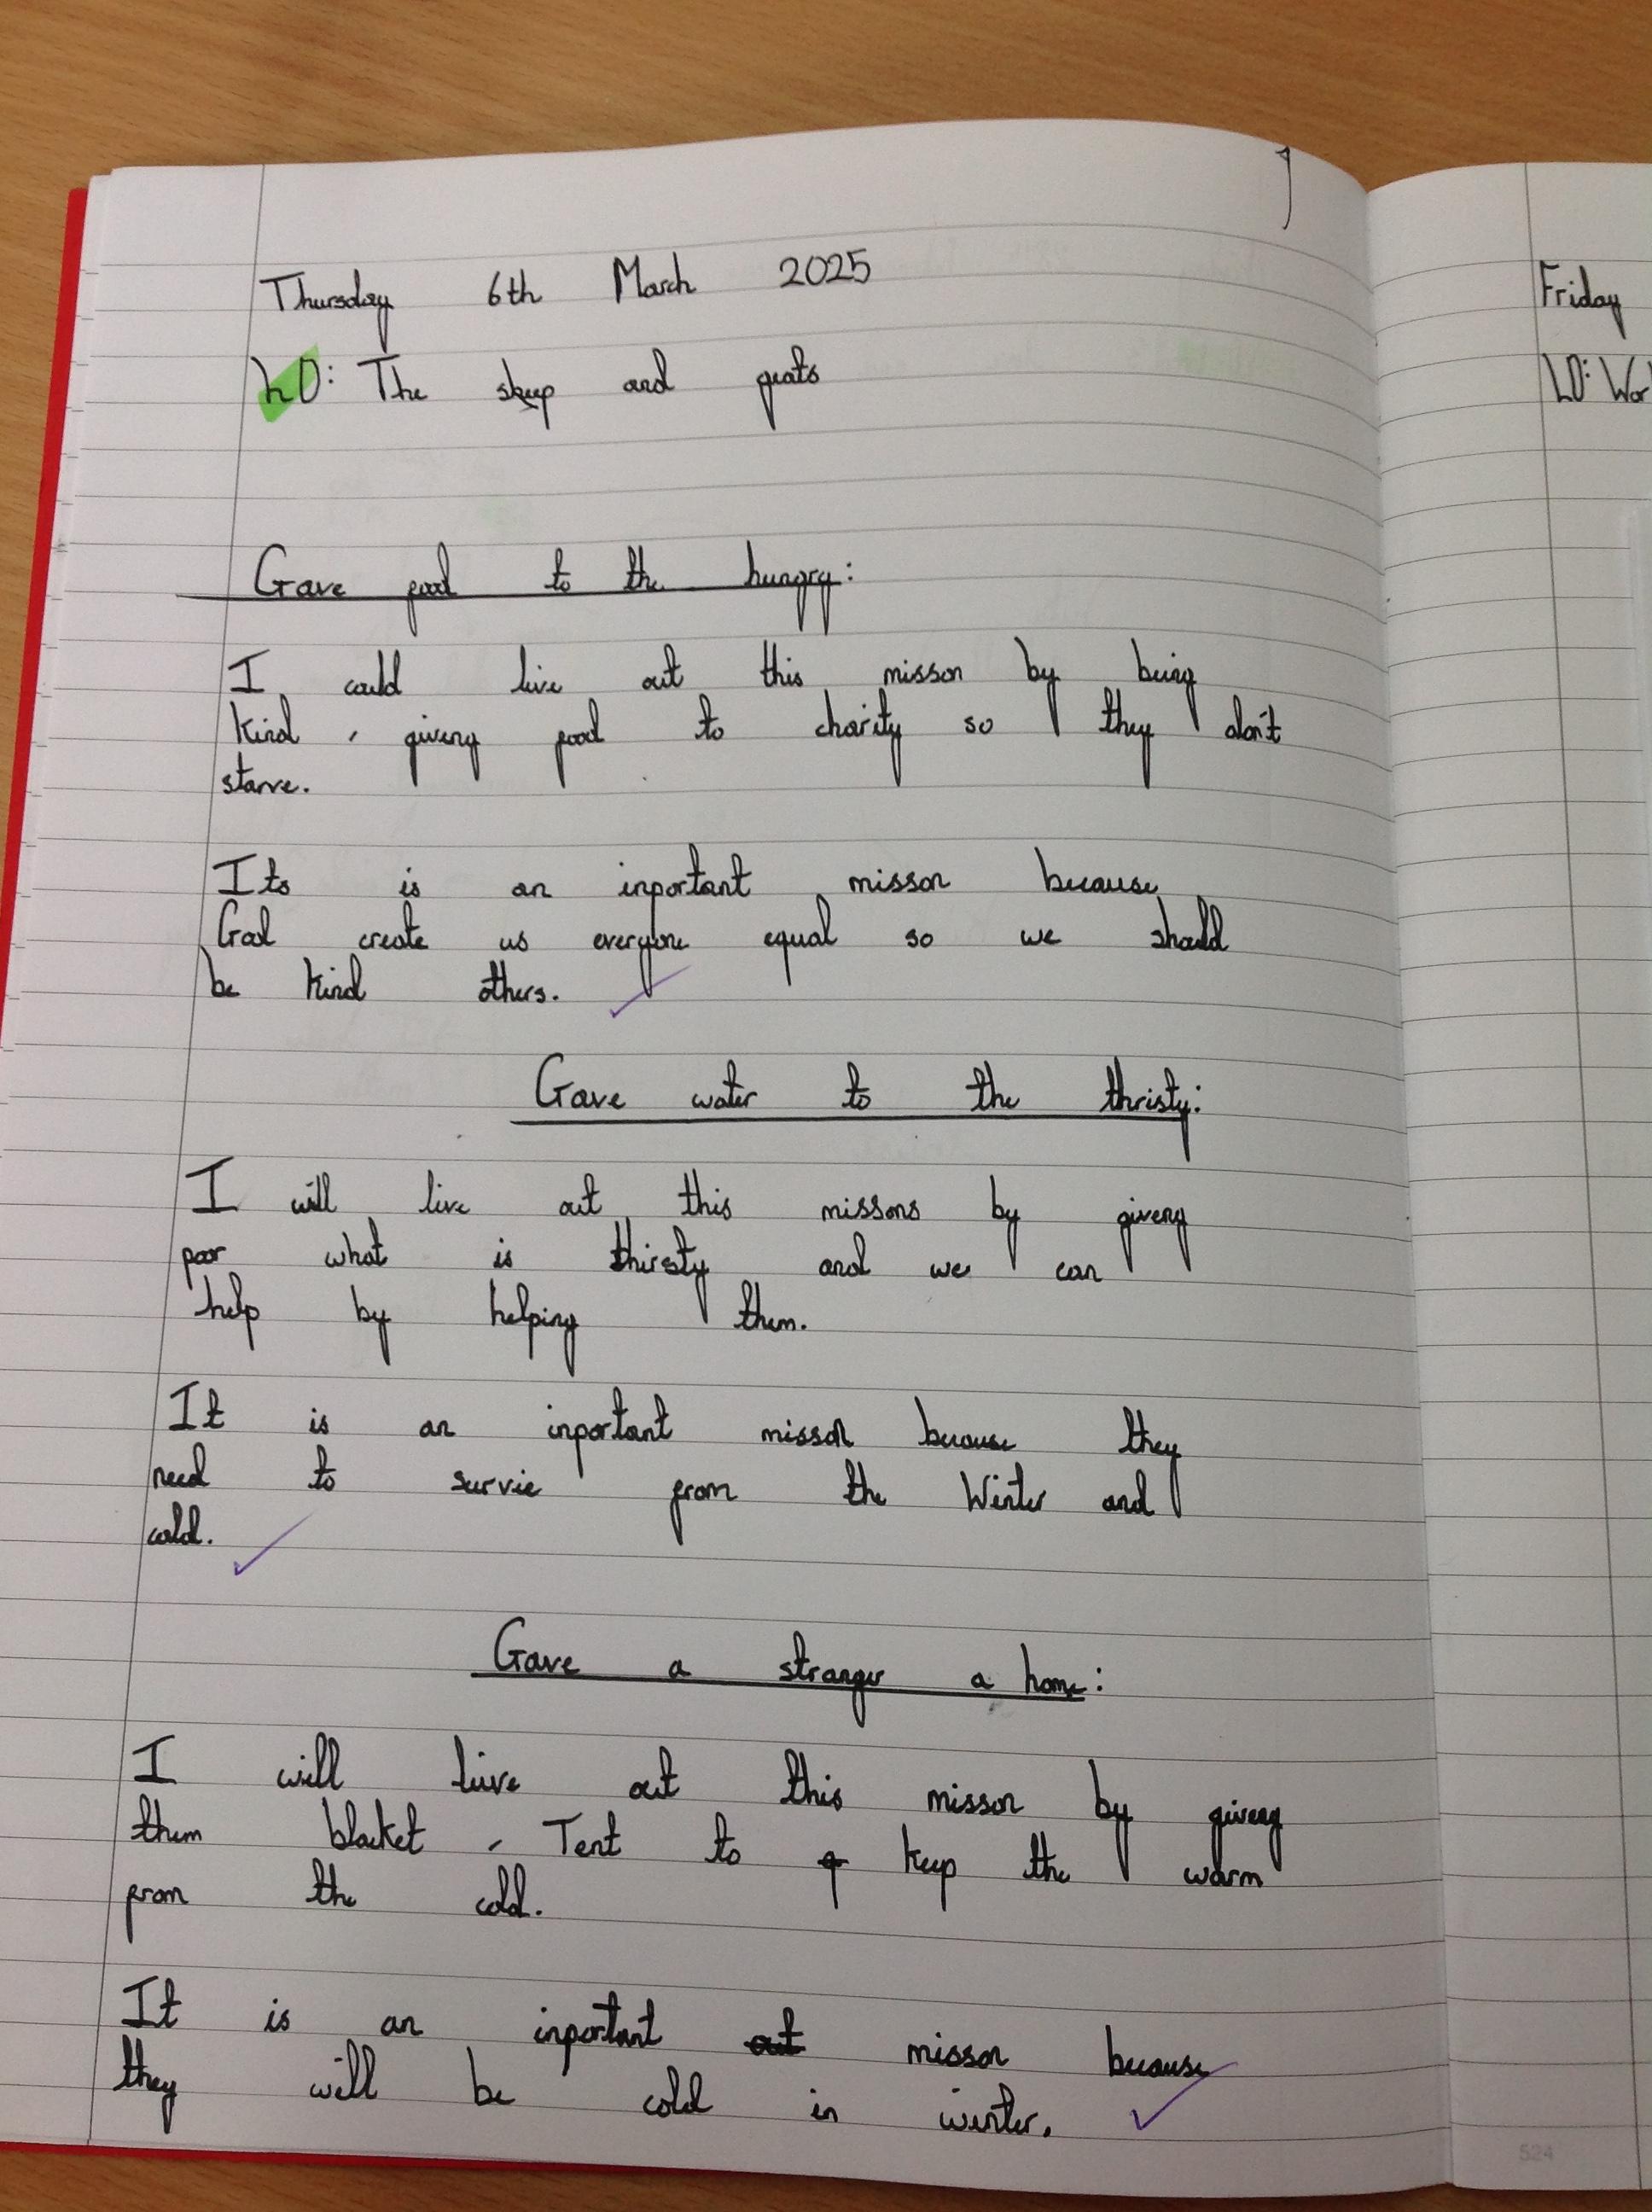 Thursday 6th March 2025
LO: The sheep and goats
Gave food to the hungry:
I could live out this misson by being
kind, giving food to charity so they don't
starve.
Its is an inportant misson because
God create us everyone equal so we should
be kind others.
Gave water to the thristy:
I will live out this missons by giveng
poor what is thirsty and we can
help by helping them.
It is an inportant misson because they
need to survie from the Winter and
cold.
Gave a stranger a home:
I will liive out this misson by giveng
them blacket, Tent to keep the warm
from the cold.
It is an inportant out misson because
they will be cold in winter.
Friday
LO: Wor
524